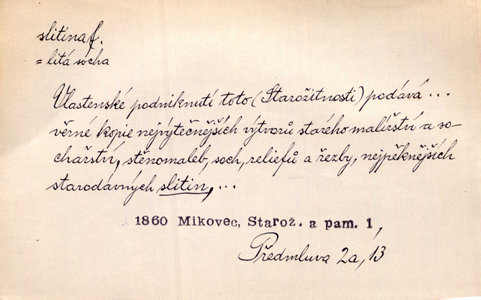 slitina f.
= litá socha
Vlastenské podniknutí toto (Starožitnosti) podává ...
věrné kopie nejvýtečnějších výtvorů starého malířství a so-
chařství, stěnomaleb, soch, reliefů a řezby, nejpěknějších
starodávných slitin, ...
1860 Mikovec, Starož. a pam. 1,
Předmluva 2a, 13